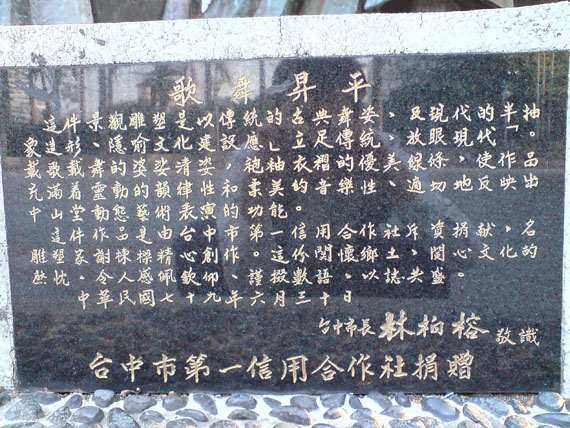 歌舞昇平
這件景觀雕塑是以傳統的古典舞姿及現代的半抽
象造形、隱喻文化建設應「立足傳統、放眼現代」
戴歌戴舞的 姿 和 袖衣褶的優美線條 使作品
充滿著靈動的韻律 柔 音樂性 適切地反映出
中山堂動態藝術表演的功能。
這件作品是由台中市第一信用合作社斥資捐献、名
雕塑家謝棟樑精心創作、這份 懷鄉土、 文化的
熱忱 令人感佩欽仰。謹 數語以誌 盛。
中華民國七十九年六月三十日
台中市長 林柏榕 敬識
台中市第一信用合作社捐贈